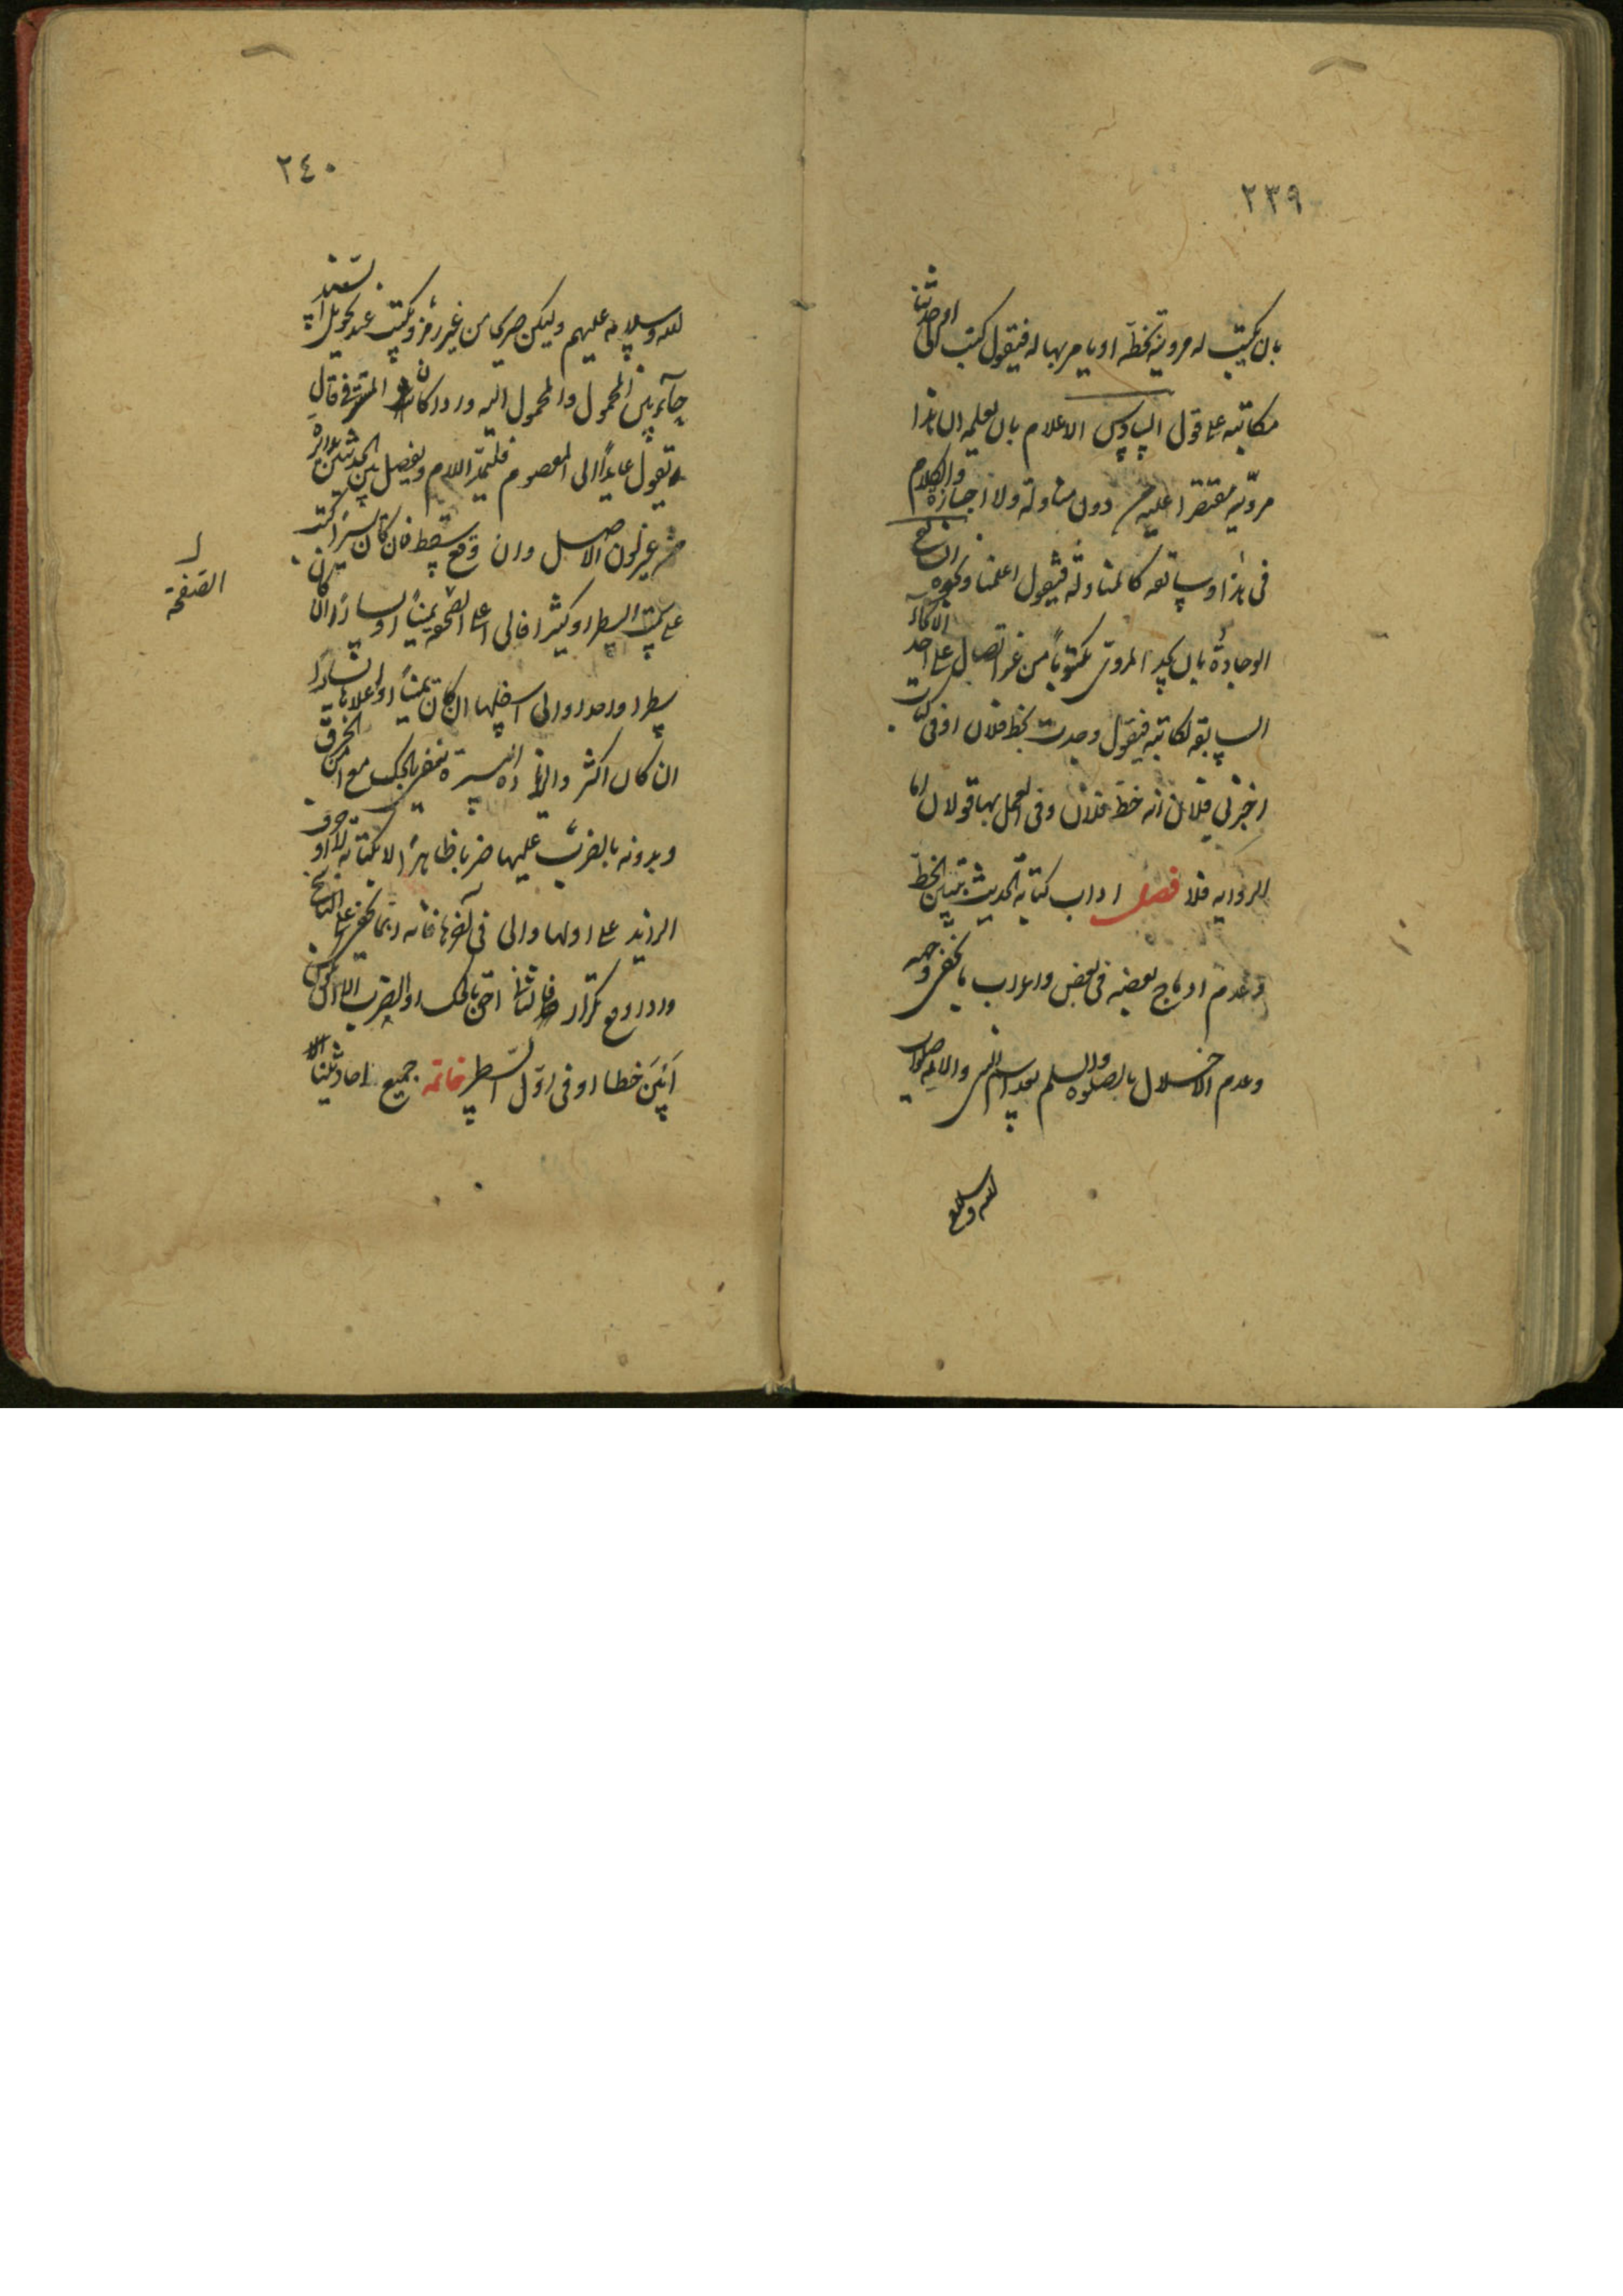 ٢٣٩
بان يكتب له مرويه بخطه او يامر بها له فيقول كتب الى او حدثنا
مكاتبة على قول السادس الاعلام بان يعلمه ان هذا
مرويه مقتصرا عليه من دون مناولة ولا اجازة والكلام
فى هذا وسابقه كالمناولة فيقول اعلمنا ونحوه السابع
الوجادة بان يجد المروى مكتوبا من غير اتصال على احد الانحاء
السابقة لكاتبه فيقول وجدت بخط فلان او فى كتاب
اخبرنى فلان انه خط فلان وفى العمل بها قولان اما
الرواية فلا فصل اداب كتابة الحديث تبيين الخط
وعدم ادماج بعضه فى بعض واعراب ما يخفى وجهه
وعدم الاخلال بالصلوة والسلم بعد اسم النبى والائمه صلوات
الله وسلامه
٢٤٠
الله وسلامه عليهم وليكن صريحا من غير رمز ويكتب عند تحويل السند
حاء بين المحمول والمحمول اليه واذا كان المستتر فى قال
يقول عايدا الى المعصوم فليمد اللام ويفصل بين الحديثين بدائرة
صغيرة من غير لون الاصل وان وقع سقط فان كان يسيرا كتب
على سمت السطر او كثيرا فالى اعلى الصفحة يمينا او يسارا ان كان
الصفحة
سطرا واحدا والى اسفلها ان كان يمينا واعلاها يسارا
ان كان اكثر والزيادة اليسيرة تنفى بالحك مع امن الخرق
وبدونه بالضرب عليها ضربا ظاهرا لا بكتابة لا او حرف
الزاى على اولها والى فى اخرها فانه ربما يخفى على الناسخ
واذا وقع تكرار فالثانى احق بالحك او الضرب الا ان يكون
ابين خطا او فى اول السطر خاتمه جميع احاديثنا الا